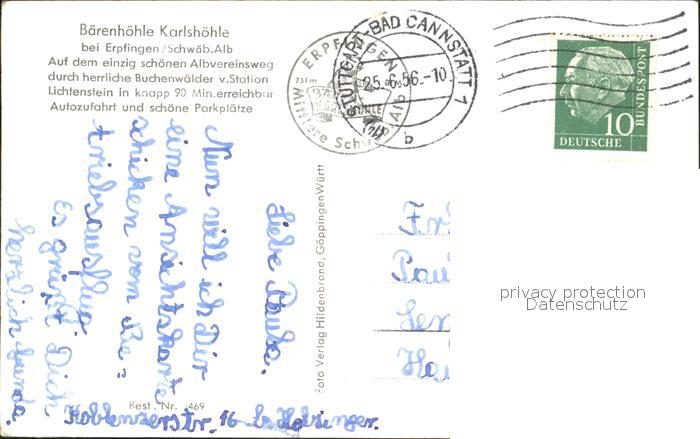 Bärenhöhle Karlshöhle
bei Erpfingen/Schwäb.Alb
Auf dem einzig schönen Albvereinsweg
durch herrliche Buchenwälder v.Station
Lichtenstein in knapp 90 Min.erreichbar
Autozufahrt und schöne Parkplätze
ERPFINGEN
731m
Mittlere Schwäb. Alb
STUTTGART-BAD CANNSTATT 1
25.6.56.-10
b
10
DEUTSCHE
BUNDESPOST
Liebe Paula.
Nun will ich Dir
eine Ansichtskarte
schicken vom Be=
triebsausflug.
Es grüßt Dich
herzlich
Foto Verlag Hildenbrand, Göppingen Württ
Best. Nr. 1469
Koblenzerstr. 16 b.
Frl
Pau
Ha
privacy protection
Datenschutz